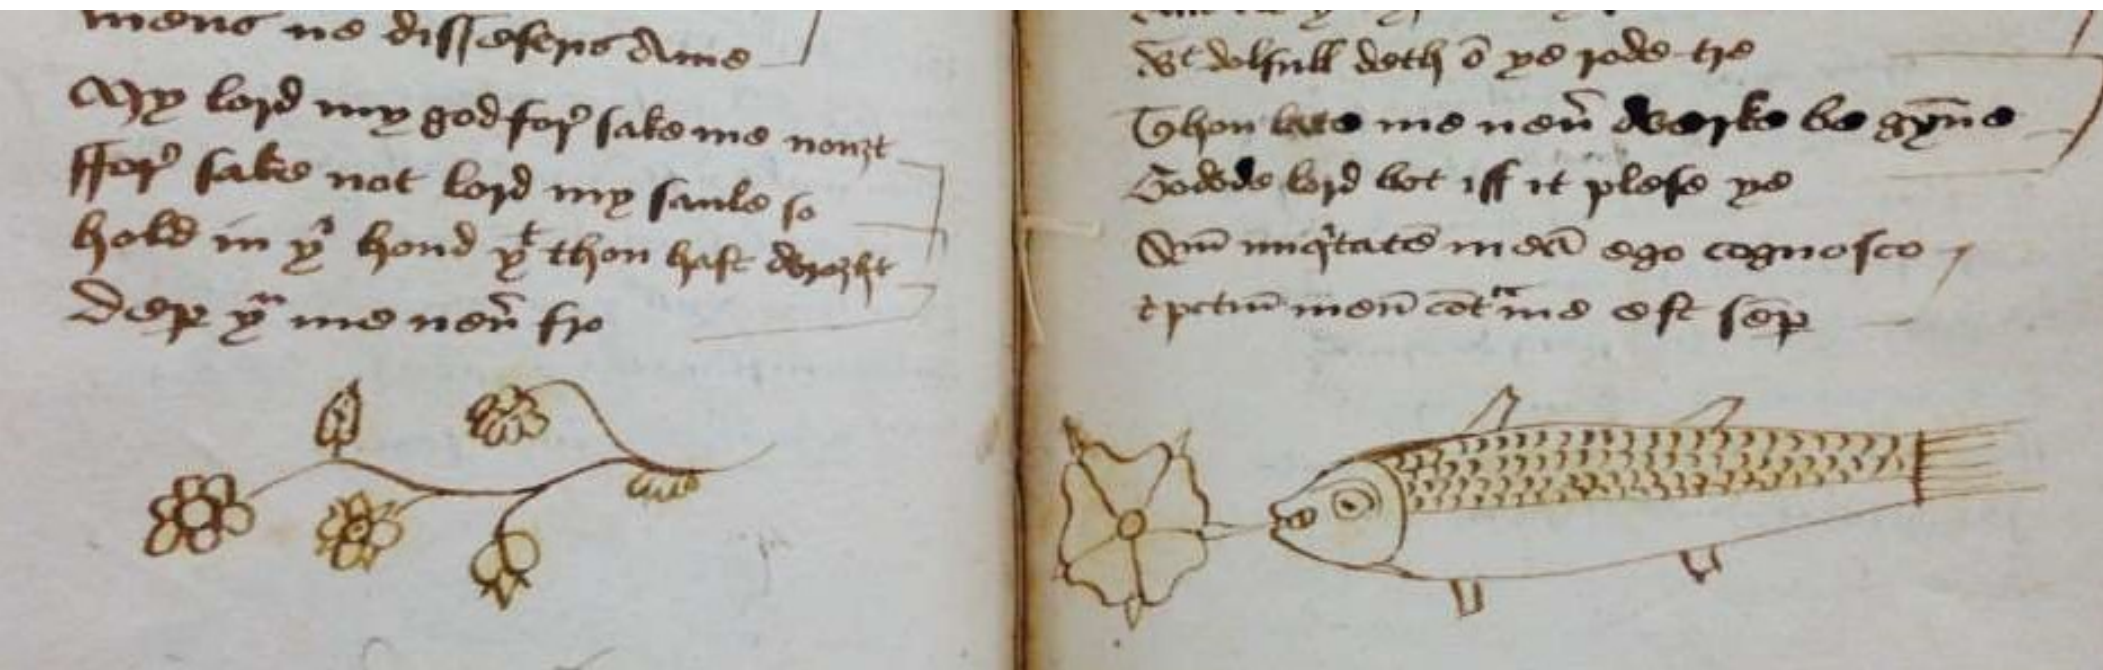 mens ne dissesers Ame
My lord my god for sake me nouȝt
ffor sake not lord my saule so
hold in yͬ hond yͭ thou hast wroȝht
Dep yͫ me neū fro
wͭ dolfull deth ō ye rode tre
Thou late me neū werke be gȳne
Godede lord bot iff it plese ye
Qm̄ iniqͥtatē meā ego cognosco
⁊ pctm̄ meū cōtͣ me est sēp